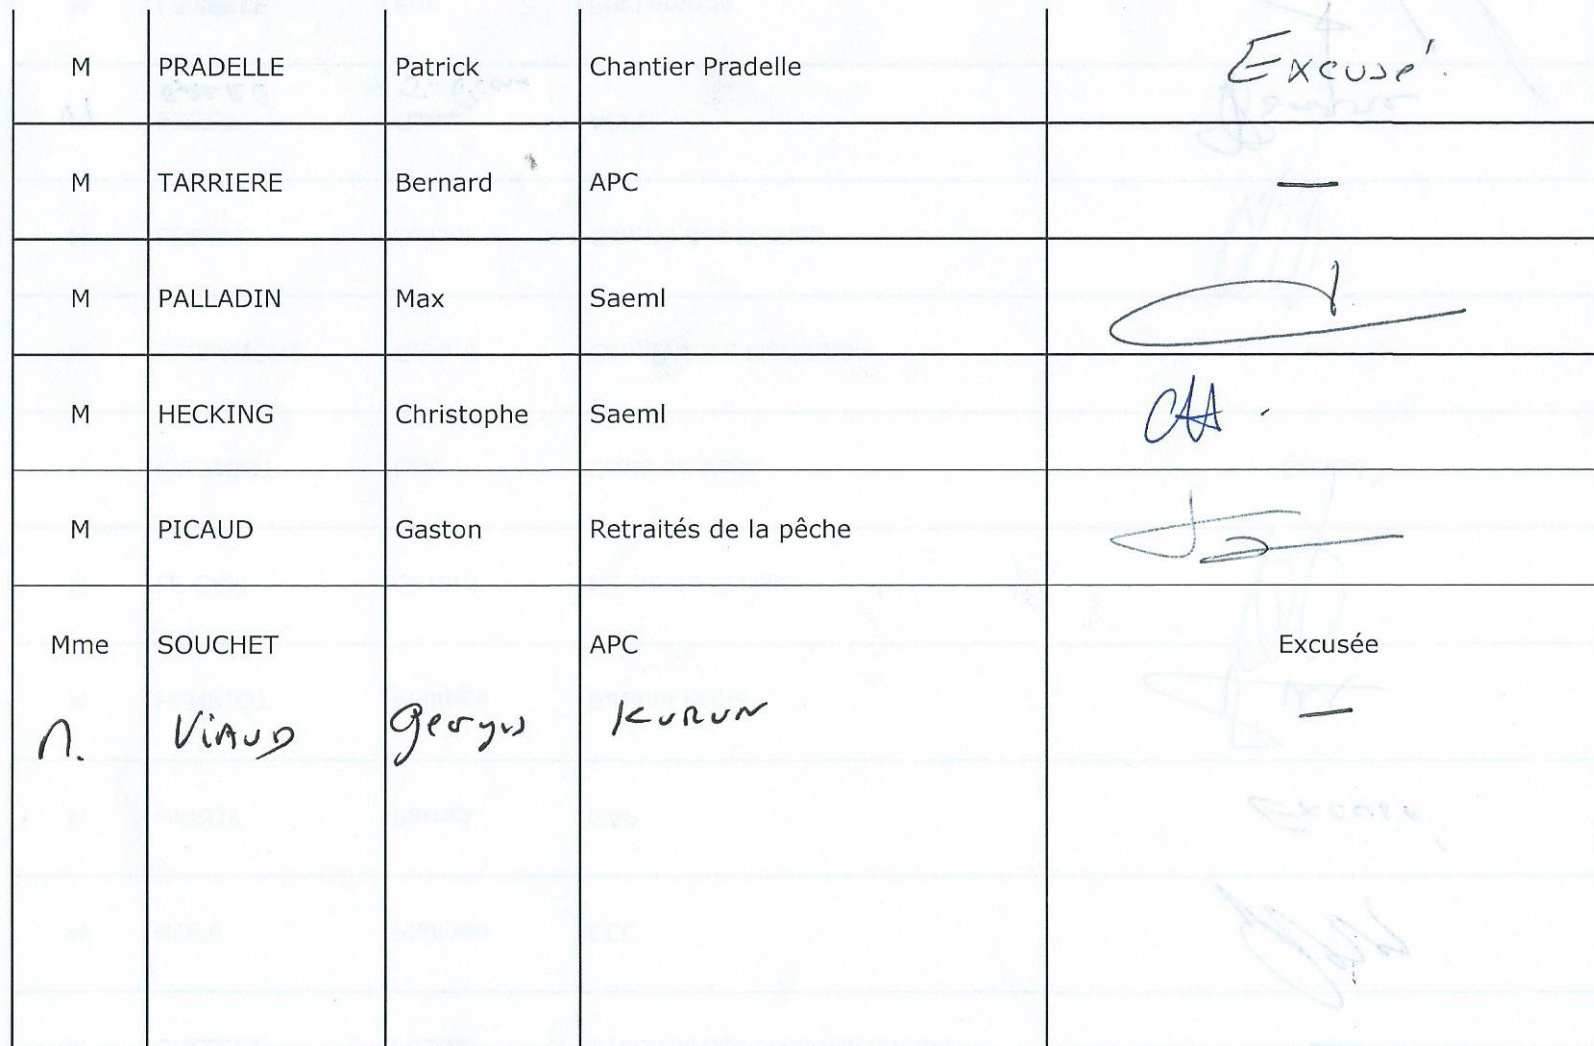 M PRADELLE Patrick Chantier Pradelle Excusé
M TARRIERE Bernard APC —
M PALLADIN Max Saeml
M HECKING Christophe Saeml
M PICAUD Gaston Retraités de la pêche
Mme SOUCHET APC Excusée
M. ViAUD Georges KURUN —